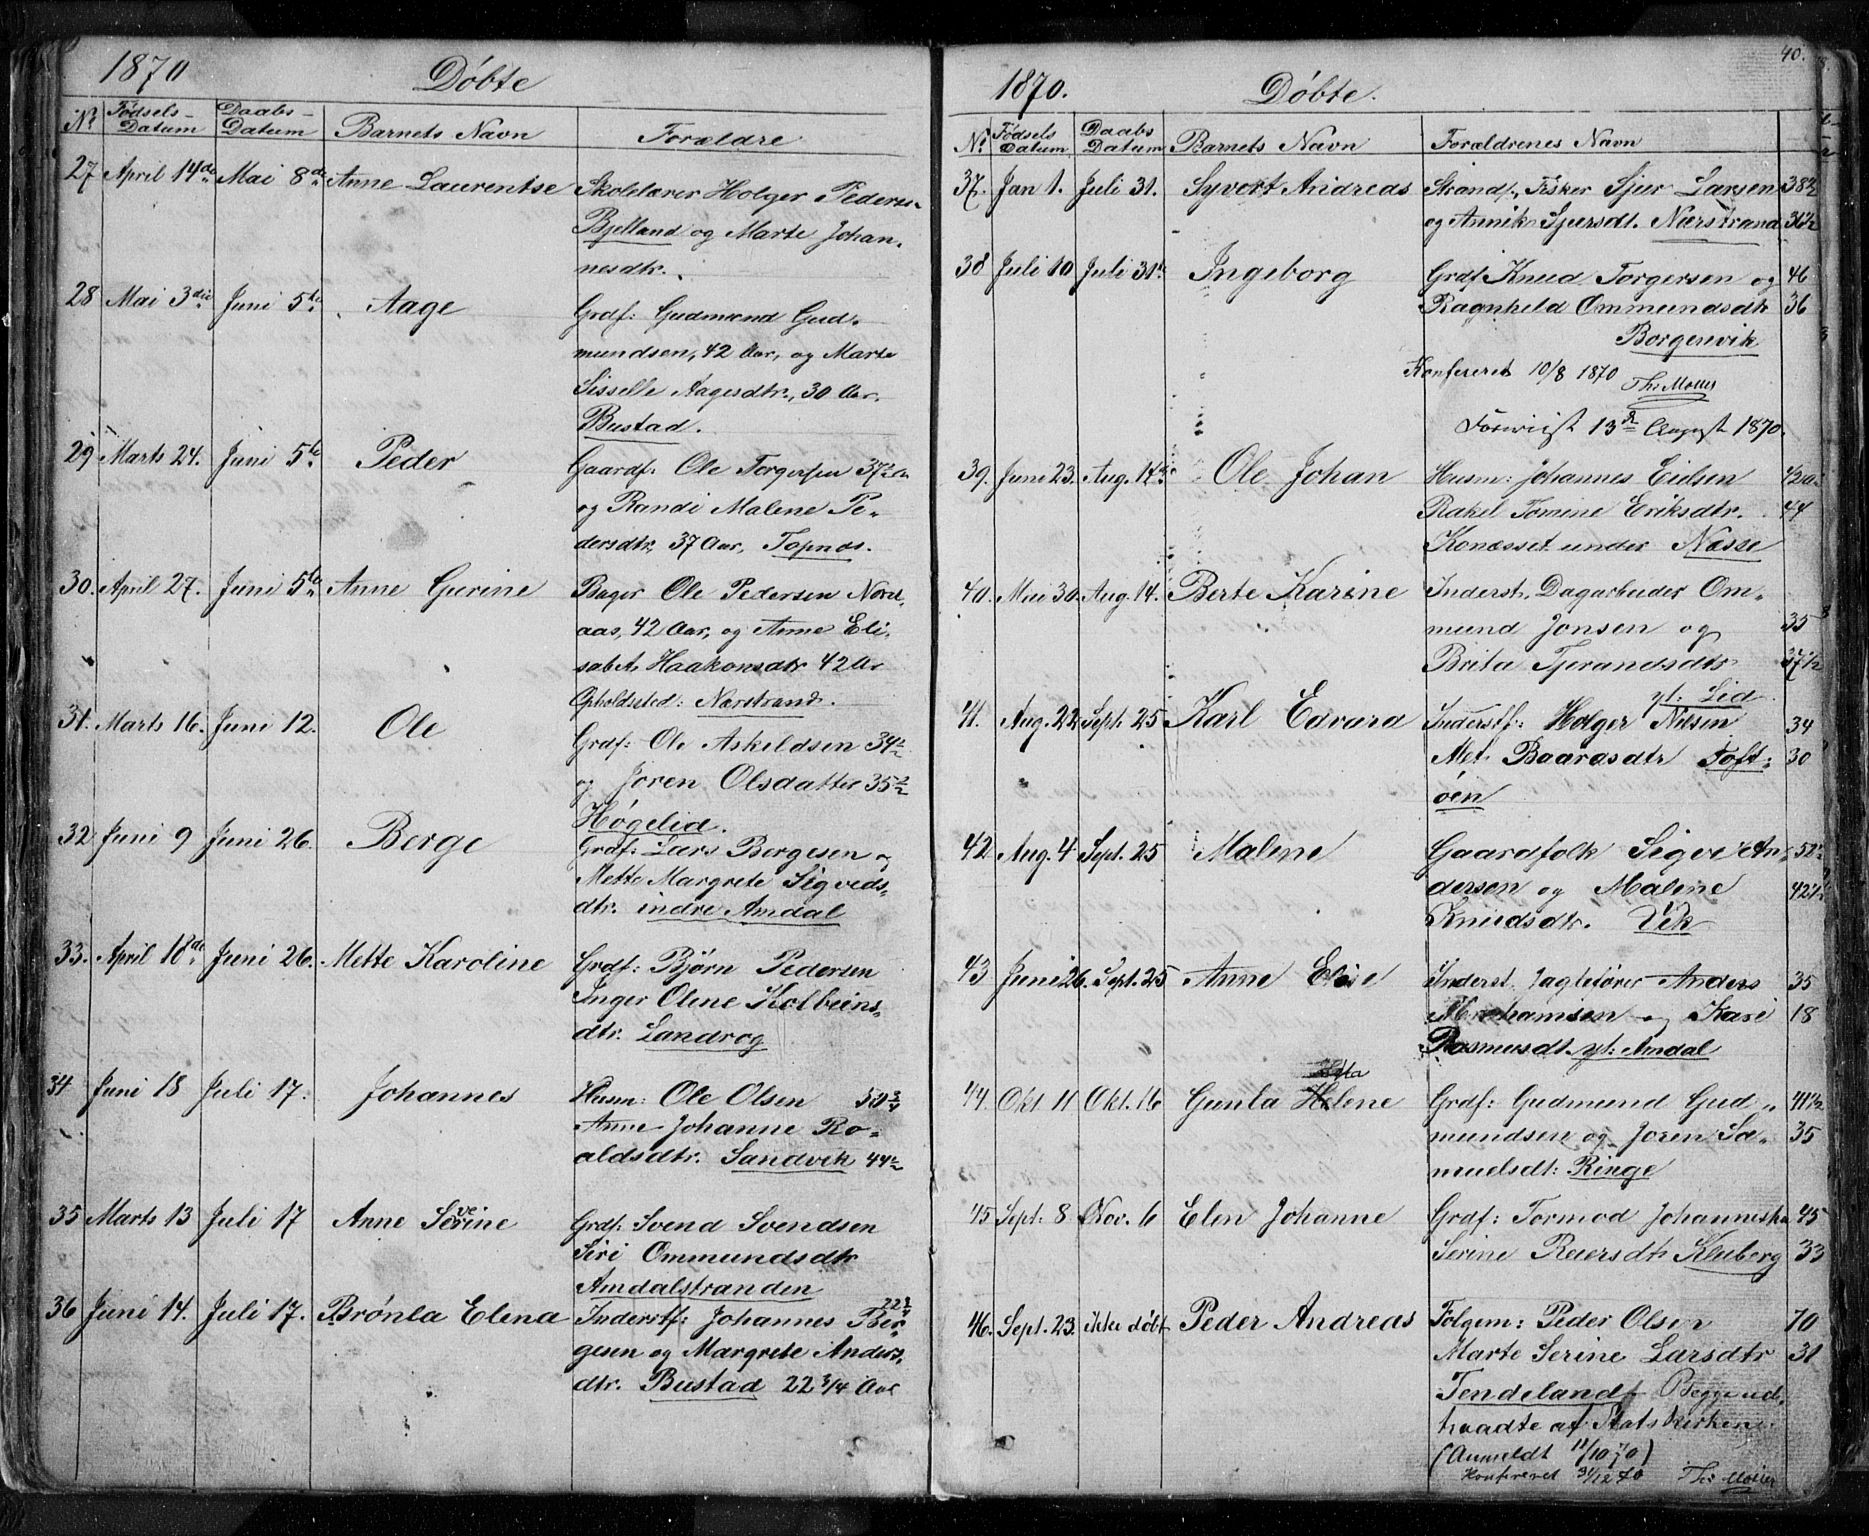 1870
Døbte
Nº Fødsels-Datum Daabs-Datum Barnets Navn Forældre
27 April 14de Mai 8de Anne Laurentse Skolelærer Holger Peders-
Bjelland og Marte Johan-
nesdtr.
28 Mai 3die Juni 5te Aage Grdf: Gudmund Gud-
mundsen, 42 Aar, og Marte
Sisselle Aagesdtr., 30 Aar.
Bustad.
29 Marts 24. Juni 5te Peder Gaardf: Ole Torgersen 37½ A.
og Randi Malene Pe-
dersdtr, 37 Aar, Topnes.
30. April 27. Juni 5te Anne Gurine Bager Ole Pedersen Nord-
aas, 42 Aar, og Anne Eli-
sabet Haakonsdtr 42 Ar
Opholdssted: Nærstrand.
31. Marts 16. Juni 12. Ole Grdf: Ole Askeldsen 34½
og Joren Olsdatter 35½
Høgelid.
32 Juni 9 Juni 26. Berge Grdf: Lars Bergesen og
Mette Margrete Sigveds-
dtr. indre Amdal
33. April 18de Juni 26. Mette Karoline Grdf: Bjørn Pedersen
Inger Oline Kolbeins-
dtr. Landrog
34 Juni 18 Juli 17. Johannes Husm: Ole Olsen 50¾
Anne Johanne Ro-
aldsdtr. Sandvik 44½
35 Marts 13 Juli 17 Anne Severine Grdf: Svend Svendsen
Siri Ommundsdtr
Amdalstranden
36 Juni 14. Juli 17. Brønla Elena Inderstf: Johannes Ber- 22¾
gesen og Margrete Anders-
dtr. Bustad 22 3/4 Aar
40.
1870.
Døbte.
Nº Fødsels Datum Daabs Datum Barnets Navn Forældrenes Navn
37. Jan 1. Juli 31. Syvert Andreas Strandf., Fisker Sjur Larsen 38½
og Annik Sjursdt. Nærstrand 31½
38 Juli 10 Juli 31te Ingeborg Grdf Knud Torgersen og 46
Ragnhild Ommundsdtr 36
Borgenvik
Konfereret 10/8 1870 Th: Møller
Forevist 13de August 1870.
39. Juni 23. Aug. 14de Ole Johan Husm: Johannes Eidsen 42
Rakel Tomine Eriksdtr. 44
Konæsset under Næsse
40. Mai 30. Aug. 14. Berte Karine Inderst, Dagarbeider Om-
mund Jonsen og 35
Brita Tjerandsdtr 37½
yt. Lid
41. Aug. 22 Sept. 25 Karl Edvard Inderstf: Holger Nilsen 34
Met. Baardsdtr Toft- 30
øen
42 Aug. 4 Sept. 25 Malene Gaardfolk Sigve An- 52
dersen og Malene 42½
Knudsdtr. Vik
43 Juni 26. Sept. 25 Anne Elise Inderst. Jagtefører Anders 35
Abrahamsen og Kari 18
Rasmusdt. yt: Amdal
44. Okt 11 Okt. 16 Gunla Helene Grdf: Gudmund Gud- 41½
mundsen og Joren Sa- 35
muelsdt: Ringe
45 Sept. 8 Nov. 6 Elen Johanne Grdf: Tormod Johannes 45
Serine Reiersdtr Kluberg 33
46. Sept. 23. ikke døbt Peder Andreas Følgem: Peder Olsen 70
Marte Serine Larsdtr 31
Tendeland Begge ud-
traadte af Statskirken
(Anmeldt 11/10 70)
Konfereret 31/12 70 Th: Møller